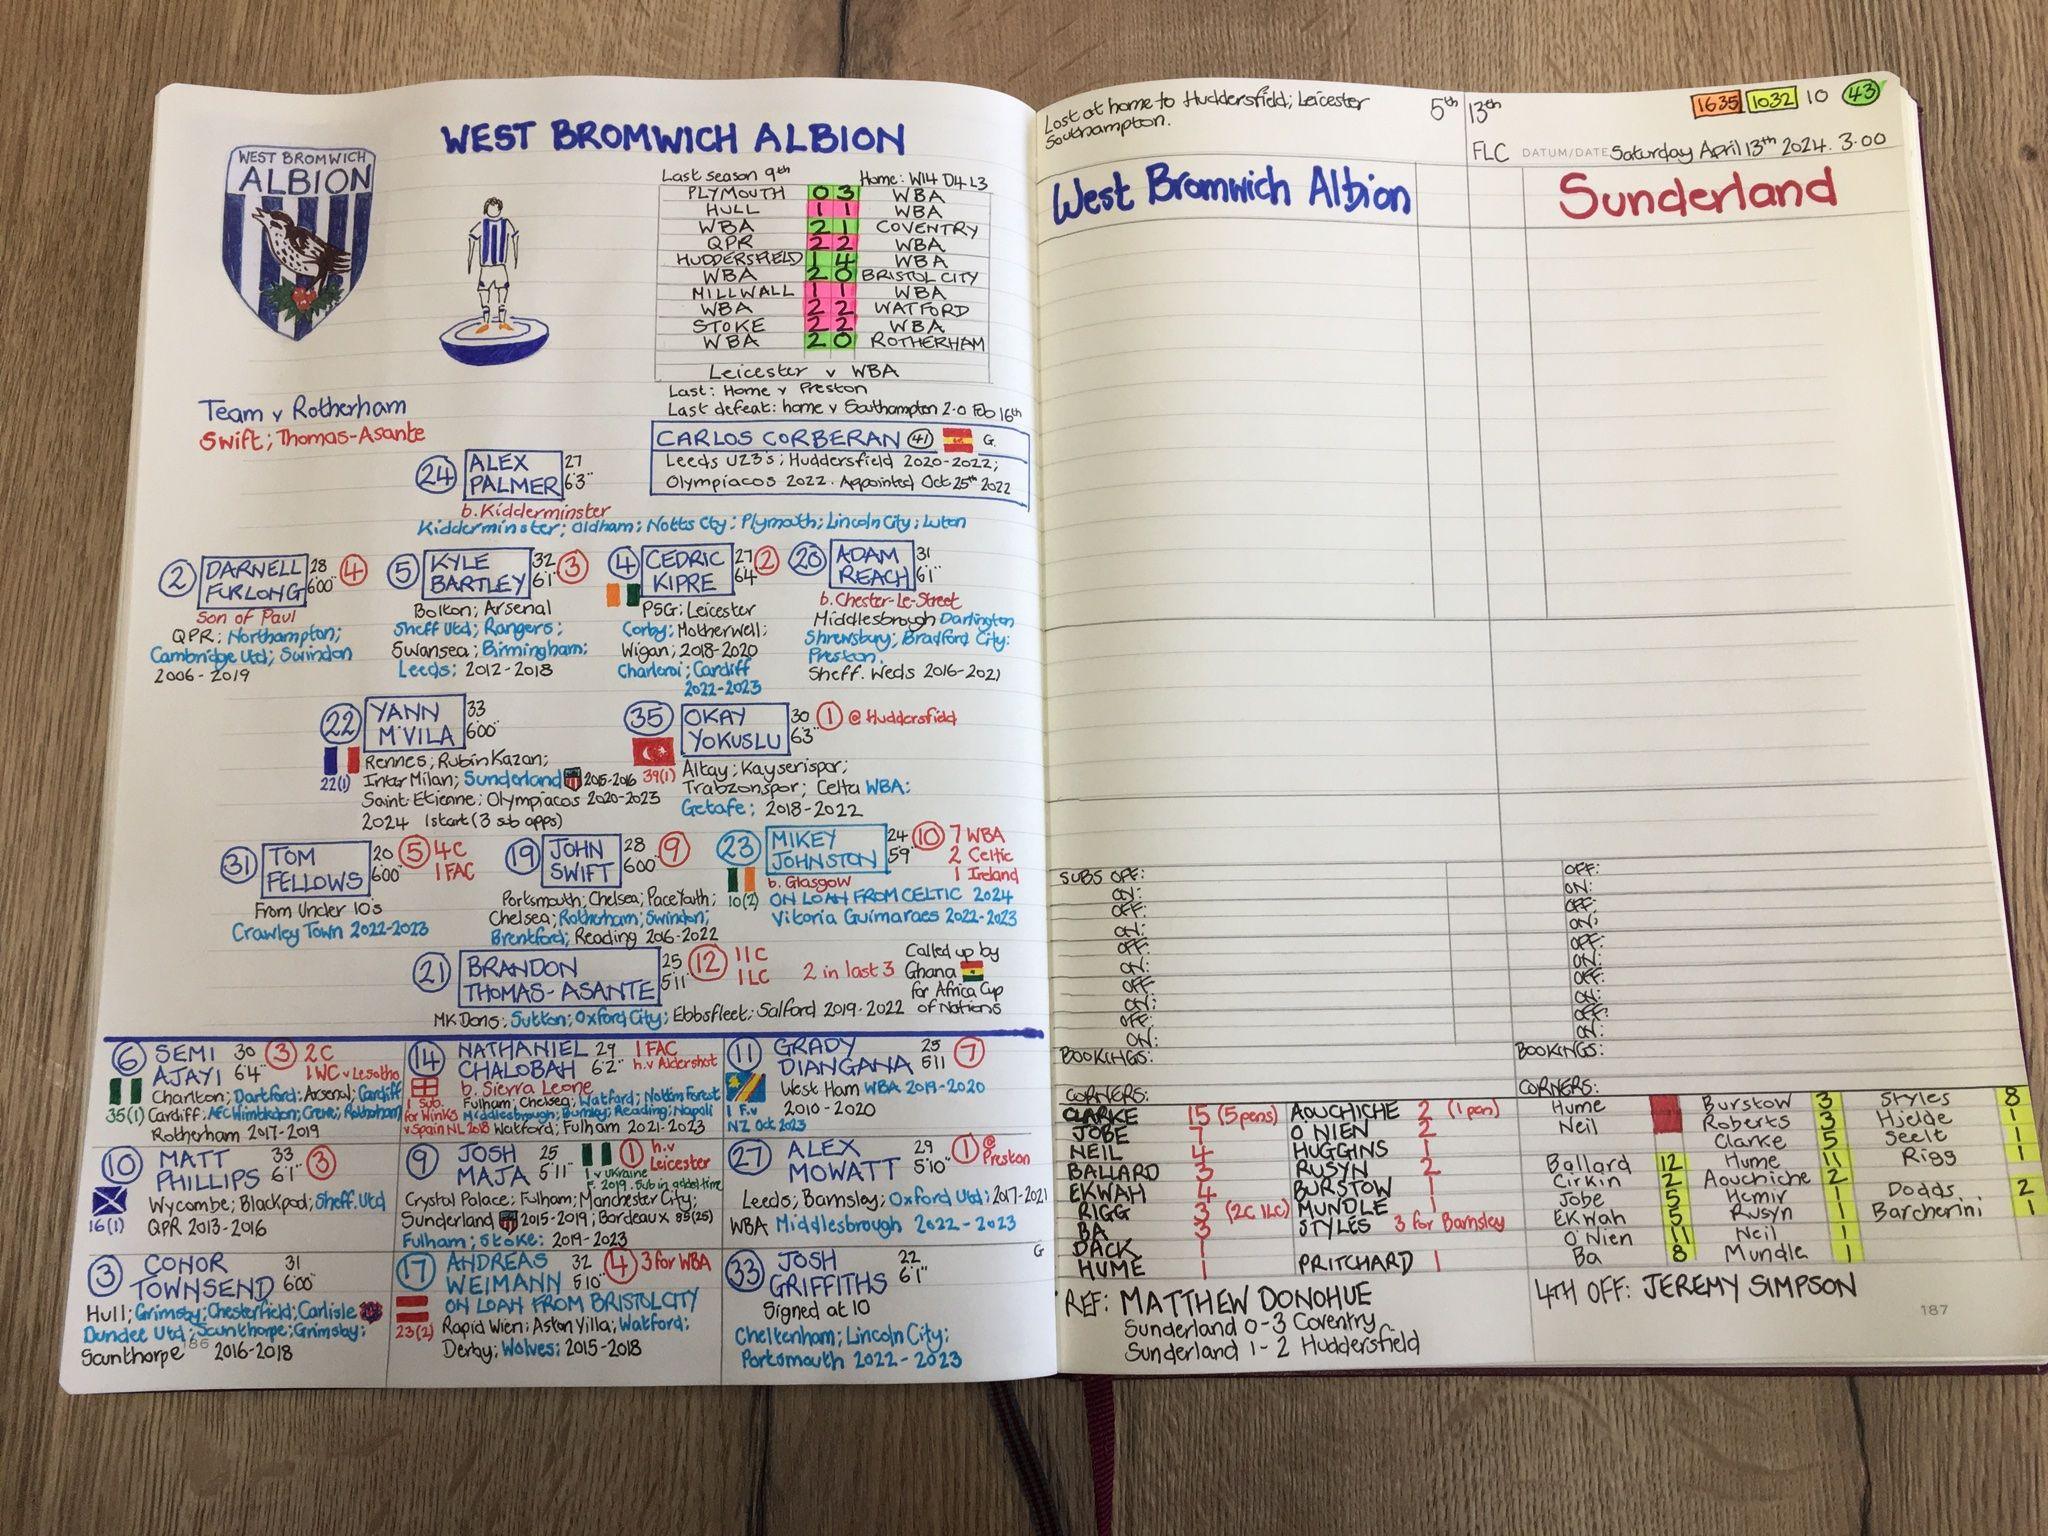 WEST BROMWICH ALBION
WEST BROMWICH
ALBION
Last season 9th Home: W14 D4 L3
PLYMOUTH 0 3 WBA
HULL 1 1 WBA
WBA 2 1 COVENTRY
QPR 2 2 WBA
HUDDERSFIELD 1 4 WBA
WBA 2 0 BRISTOL CITY
MILLWALL 1 1 WBA
WBA 2 2 WATFORD
STOKE 2 2 WBA
WBA 2 0 ROTHERHAM
Leicester v WBA
Last: Home v Preston
Last defeat: home v Southampton 2-0 Feb 16th
Team v Rotherham
Swift; Thomas-Asante
CARLOS CORBERAN 41 G.
Leeds U23's; Huddersfield 2020-2022;
Olympiacos 2022. Appointed Oct 25th 2022
24 ALEX PALMER 27 6'3"
b. Kidderminster
Kidderminster; Oldham; Notts Cty; Plymouth; Lincoln City; Luton
2 DARNELL FURLONG 28 6'00" 4
Son of Paul
QPR; Northampton;
Cambridge Utd; Swindon
2006-2019
5 KYLE BARTLEY 32 6'1" 3
Bolton; Arsenal
Sheff Utd; Rangers;
Swansea; Birmingham;
Leeds; 2012-2018
4 CEDRIC KIPRE 27 6'4" 2
PSG; Leicester
Corby; Motherwell;
Wigan; 2018-2020
Charleroi; Cardiff
2022-2023
20 ADAM REACH 31 6'1"
b. Chester-Le-Street
Middlesbrough Darlington
Shrewsbury; Bradford City;
Preston.
Sheff. Weds 2016-2021
22 YANN M'VILA 33 6'00"
Rennes; Rubin Kazan;
22(1) Inter Milan; Sunderland 2015-2016
Saint-Etienne; Olympiacos 2020-2023
2024 1 start (3 sub apps)
35 OKAY YOKUSLU 30 6'3" 1 @ Huddersfield
39(1) Altay; Kayserispor;
Trabzonspor; Celta WBA;
Getafe; 2018-2022
31 TOM FELLOWS 20 6'00" 5 4C
1 FAC
From Under 10s
Crawley Town 2022-2023
19 JOHN SWIFT 28 6'00" 9
Portsmouth; Chelsea; Pace Youth;
Chelsea; Rotherham; Swindon;
Brentford; Reading 2016-2022
23 MIKEY JOHNSTON 24 5'9" 10 7 WBA
2 Celtic
1 Ireland
b. Glasgow
10(2) ON LOAN FROM CELTIC 2024
Vitoria Guimaraes 2022-2023
21 BRANDON THOMAS-ASANTE 25 5'11" 12 11C
1LC
2 in last 3
Called up by
Ghana
for Africa Cup
of Nations
MK Dons; Sutton; Oxford City; Ebbsfleet; Salford 2019-2022
6 SEMI AJAYI 30 6'4" 3 2C
1 WC v Lesotho
Charlton; Dartford; Arsenal; Cardiff
35(1) Cardiff; AFC Wimbledon; Crewe; Rotherham
Rotherham 2017-2019
14 NATHANIEL CHALOBAH 29 6'2" 1 FAC
h.v Aldershot
b. Sierra Leone
1 Sub.
for Winks
v Spain NL 2018
Fulham; Chelsea; Watford; Nottm Forest
Middlesbrough; Burnley; Reading; Napoli
Watford; Fulham 2021-2023
11 GRADY DIANGANA 25 5'11 7
West Ham WBA 2019-2020
2010-2020
1 F.v
NZ Oct 2023
10 MATT PHILLIPS 33 6'1" 3
Wycombe; Blackpool; Sheff. Utd
16(1) QPR 2013-2016
9 JOSH MAJA 25 5'11" 1 h.v
Leicester
1 v Ukraine
F. 2019. Sub in added time
Crystal Palace; Fulham; Manchester City;
Sunderland 2015-2019; Bordeaux
Fulham; Stoke; 2019-2023
27 ALEX MOWATT 29 5'10" 1 @
Preston
Leeds; Barnsley; Oxford Utd; 2017-2021
WBA Middlesbrough 2022-2023
3 CONOR TOWNSEND 31 6'00"
Hull; Grimsby; Chesterfield; Carlisle
Dundee Utd; Scunthorpe; Grimsby;
Scunthorpe 2016-2018
186
17 ANDREAS WEIMANN 32 5'10" 4 3 for WBA
ON LOAN FROM BRISTOL CITY
23(2) Rapid Wien; Aston Villa; Watford;
Derby; Wolves; 2015-2018
33 JOSH GRIFFITHS 22 6'1" G
Signed at 10
Cheltenham; Lincoln City;
Portsmouth 2022-2023
Lost at home to Huddersfield; Leicester
Southampton.
5th 13th
1635 1032 10 43
FLC DATUM/DATE Saturday April 13th 2024. 3.00
West Bromwich Albion Sunderland
SUBS OFF: OFF:
ON: ON:
OFF: OFF:
ON: ON:
OFF: OFF:
ON: ON:
OFF: OFF:
ON: ON:
OFF: OFF:
ON: ON:
BOOKINGS: BOOKINGS:
CORNERS: CORNERS:
CLARKE 15 (5 pens) AOUCHICHE 2 (1 pen)
JOBE 7 O'NIEN 2
NEIL 4 HUGGINS 1
BALLARD 3 RUSYN 2
EKWAH 4 BURSTOW 1
RIGG 3 (2C 1LC) MUNDLE 1
BA 3 STYLES 3 for Barnsley
DACK 1
HUME 1 PRITCHARD 1
Hume Burstow 3 Styles 8
Neil Roberts 3 Hjelde 1
Clarke 5 Seelt 1
Ballard 12 Hume 11 Rigg 1
Cirkin 2 Aouchiche 2
Jobe 5 Hemir 1 Dodds 2
Ekwah 5 Rusyn 1 Barcherini 1
O'Nien 11 Neil 1
Ba 8 Mundle 1
REF: MATTHEW DONOHUE
Sunderland 0-3 Coventry.
Sunderland 1-2 Huddersfield
4TH OFF: JEREMY SIMPSON
187